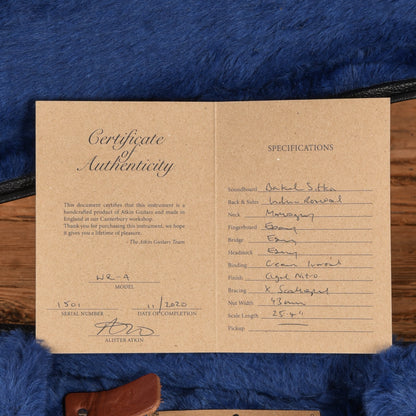 Certificate
of
Authenticity
This document certifies that this instrument is a
handcrafted product of Atkin Guitars and made in
England in our Canterbury workshop.
Thankyou for purchasing this instrument, we hope
it gives you a lifetime of pleasure.
- The Atkin Guitars Team
MODEL
1501 11/2020
SERIAL NUMBER DATE OF COMPLETION
ALISTER ATKIN
SPECIFICATIONS
Soundboard Baked Sitka
Back & Sides Indian Rosewood
Neck Mahogany
Fingerboard Ebony
Bridge Ebony
Headstock Ebony
Binding Cream
Finish Aged Nitro
Bracing X Scalloped
Nut Width 43mm
Scale Length 25.4"
Pickup